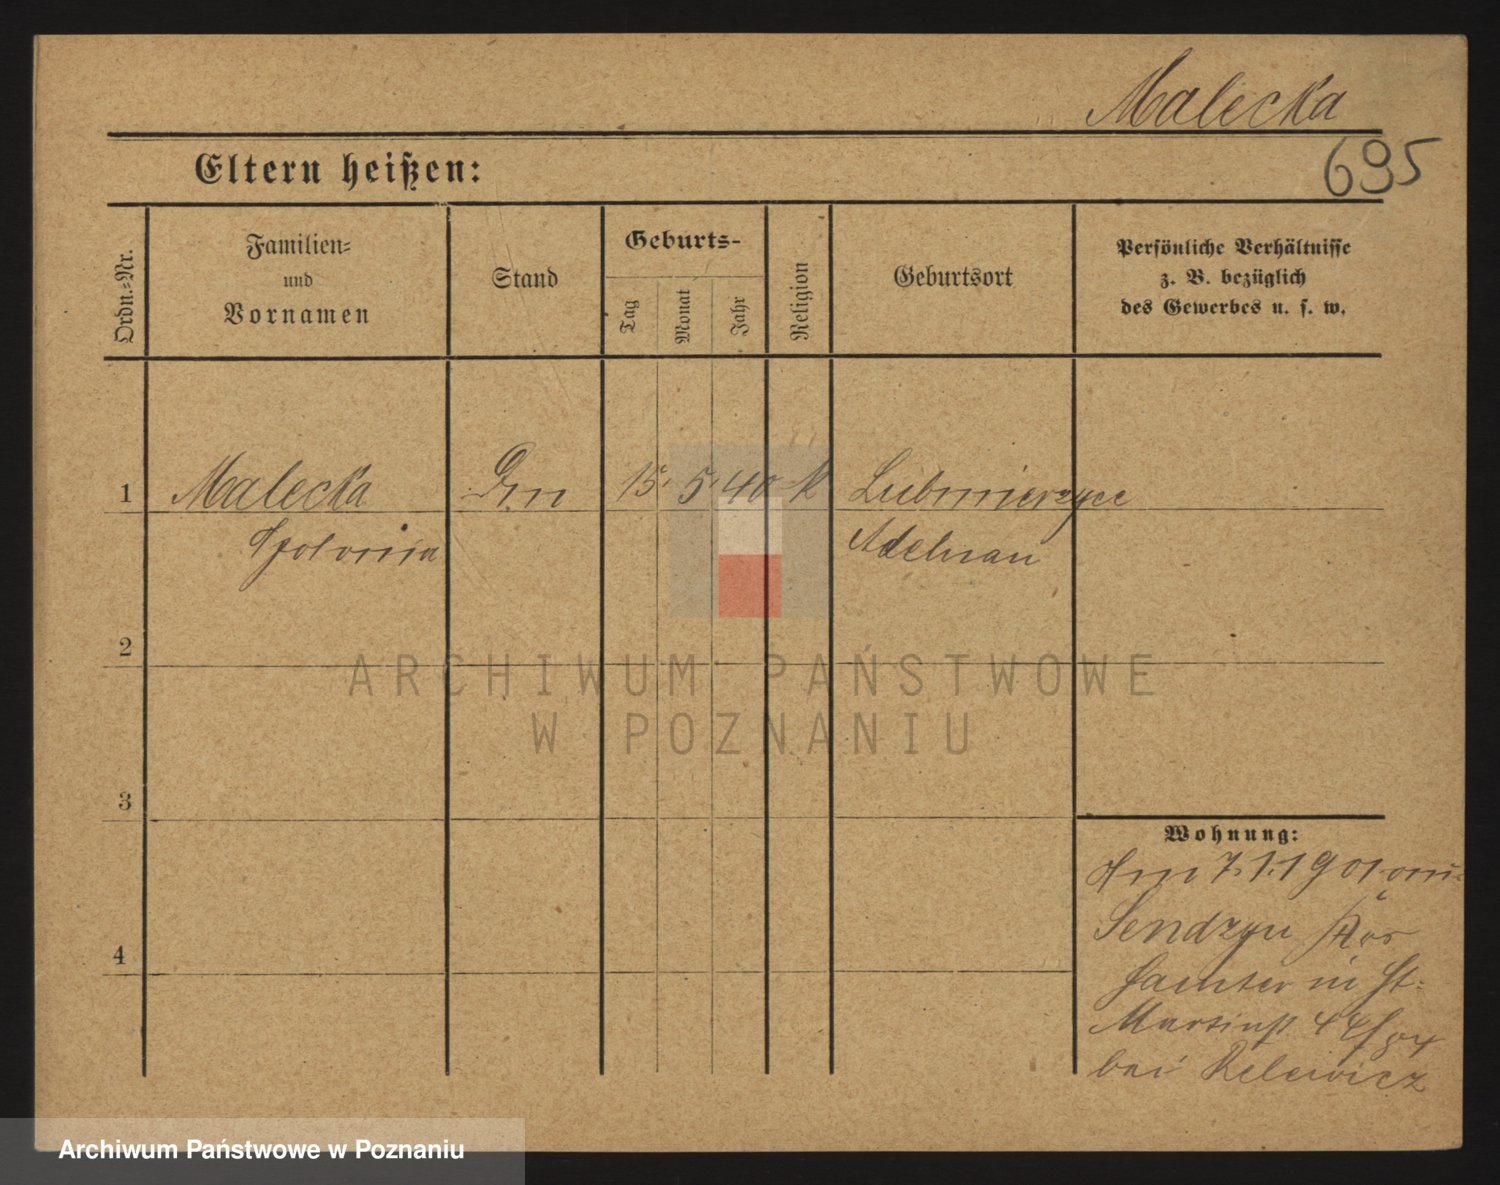 Malecka
695
Eltern heißen:
Ordn.=Nr.
Familien=
und
Vornamen
Stand
Geburts-
Tag
Monat
Jahr
Religion
Geburtsort
Persönliche Verhältnisse
z. B. bezüglich
des Gewerbes u. s. w.
1
Malecka
15. 5. 40
k
Lubmierzyce
Apolonia
Adelnau
2
ARCHIWUM PAŃSTWOWE
W POZNANIU
3
Wohnung:
Am 7.1.1901 von
Sendzyn Krs
Samter in St.
Martinst 44/
bei Relewicz
4
Archiwum Państwowe w Poznaniu